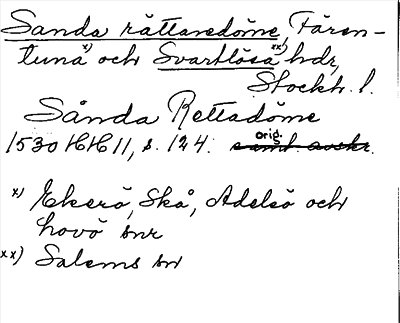 Sanda rättaredöme, Fären-
tuna x) och Svartlösa xx) hdr,
Stockh. l.
Sånda Rettadöme
1530 HH 11, s. 124. orig.
samt. avskr.
x) Ekerö, Skå, Adelsö och
Lovö snr
xx) Salems sn